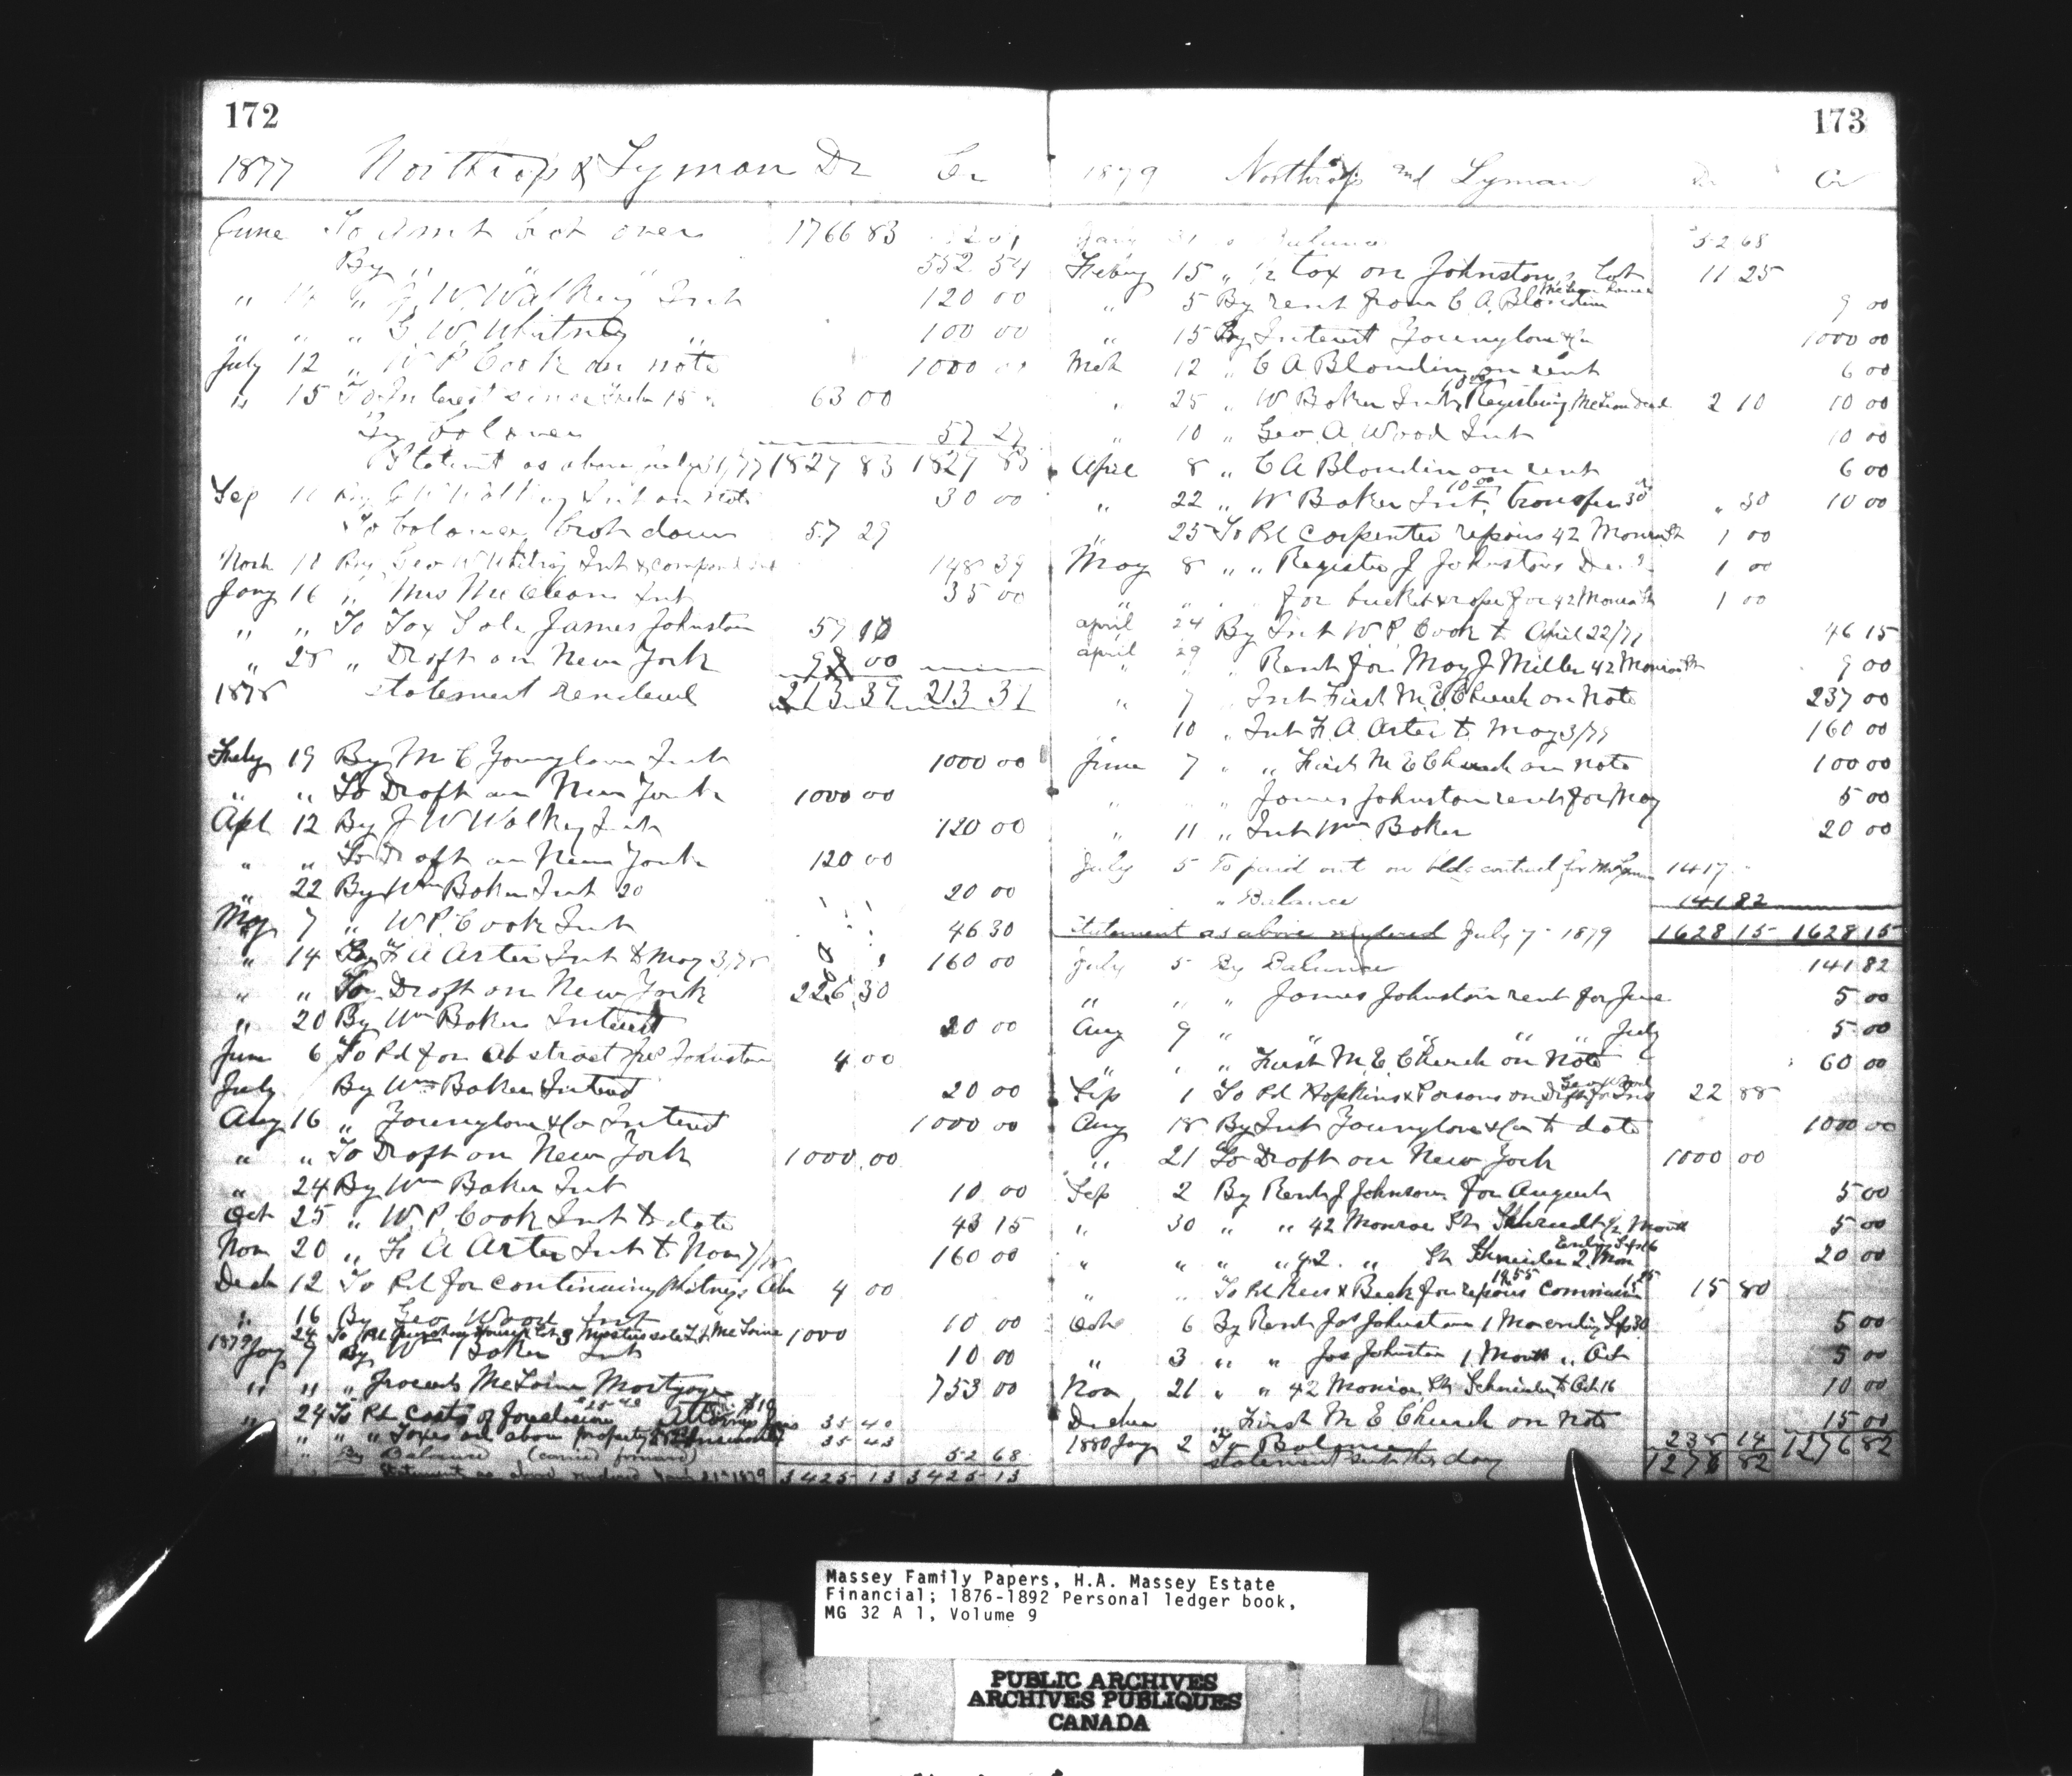 172
1877 Northrop & Lyman Dr Cr
June To Amt brot over 1766 83
By " " " 552 54
" " W. Walkey Int 120 00
" " " G W. Whitney " 100 00
July 12 " W P Cook on note 1000
" 15 To Interest since 15 63 00
By balance 57 29
Statemt as above July 31/77 1829 83 1829 83
Sep By W Walkey Int on note 30 00
To balance brot down 57 29
18 By Geo W Whitney Int & compound 148 39
Jany 16 " Mrs McCleans Int 35 00
" " To Tax Sale James Johnston 59 10
" 28 " Draft on New York 00
1878 statement rendered 213 39 213 39
Feby 19 By M C Younglove Int 1000 00
" " To Draft on New York 1000 00
Apl 12 By J W Walkey Int 120 00
" " To Draft on New York 120 00
" 22 By Wm Baker Int 20 20 00
May 7 " W P. Cook Int 46 30
" 14 By F A Arter Int to May 3/78 160 00
" " To Draft on New York 226 30
" 20 By Wm Baker Interest 20 00
June 6 To Pd for Abstract Johnston 4 00
July By Wm Baker Interest 20 00
Aug 16 " Younglove & Co Interest 1000 00
" " To Draft on New York 1000 00
" 24 By Wm Baker Int 10 00
Oct 25 " W. P. Cook Int to date 43 15
Nov 20 " F A Arter Int to Nov 160 00
Decb 12 To Pd for continuing Whitneys Abs 4 00
" 16 By Geo Wood Int 10 00
24 To Pd 1000
1879 Jany 9 By Wm Baker Int 10 00
" " " proceeds McLains Mortgage 753 00
" 24 To Pd costs of foreclosing Attorneys fees $10 35 40
" " " Taxes on above property 35 43
" By Balance (carried forward) 52 68
Statement as above rendered Jany 21st 1879 3425 13 3425 13
173
1879 Northrop and Lyman Dr Cr
Jany 31 Balance 52 68
Febuy 15 " 1/2 tax on Johnstons Lot 11 25
" 5 By rent from C A. Blondin 9 00
" 15 By Interest Younglove & Co 1000 00
Mch 12 " C A Blondin on rent 6 00
" 25 " W Baker Int 10 00 Registering McLean Deed 2 10 10 00
" 10 " Geo. A. Wood Int 10 00
April 8 " C A Blondin on rent 6 00
" 22 " W Baker Int 10 00 transfer 30 " 30 10 00
" 25 To Pd Carpenter repairs 42 Monroe St 1 00
May 8 " " Register J Johnstons Deed 1 00
" " " for bucket & rope for 42 Monroe St 1 00
april 24 By Int W P Cook to April 22/79 46 15
april 29 " Rent for May J Miller 42 Monroe St 9 00
" 7 " Int First M. E. Church on Note 237 00
" 10 " Int F. A. Arter to May 3/79 160 00
June 7 " " First M E Church on note 100 00
" " " James Johnston rent for May 5 00
" 11 " Int Wm Baker 20 00
July 5 To paid out on bldg contract for Mr Lyman 1417 -
" Balance 141 82
Statement as above rendered July 7 - 1879 1628 15 1628 15
July 5 By Balance 141 82
" " " James Johnston rent for June 5 00
Aug 9 " " " " " July 5 00
" " " First M. E. Church on Note 60 00
Sep 1 To Pd Hopkins & Parsons on 22 88
Aug 18 By Int Younglove & Co to date 1000 00
" 21 To Draft on New York 1000 00
Sep 2 By Rent J Johnson for August 5 00
" 30 " " 42 Monroe St 1/2 Month 5 00
" " " " 42 " St Schneider 2 Mon Ending Sep 16 20 00
" " To Pd Rees & Beek for repairs 14.55 Commission 1.25 15 80
Octo 6 By Rent Jas Johnston 1 Mo ending Sep 30 5 00
" 3 " " Jas Johnston 1 Month " Oct 5 00
Nov 21 " " 42 Monroe St Schneider to Oct 16 10 00
Decber " First M E Church on Note 15 00
1880 Jany 2 To Balance 238 14 1276 82
statement sent this day 1276 82
Massey Family Papers, H.A. Massey Estate
Financial; 1876-1892 Personal ledger book,
MG 32 A 1, Volume 9
PUBLIC ARCHIVES
ARCHIVES PUBLIQUES
CANADA